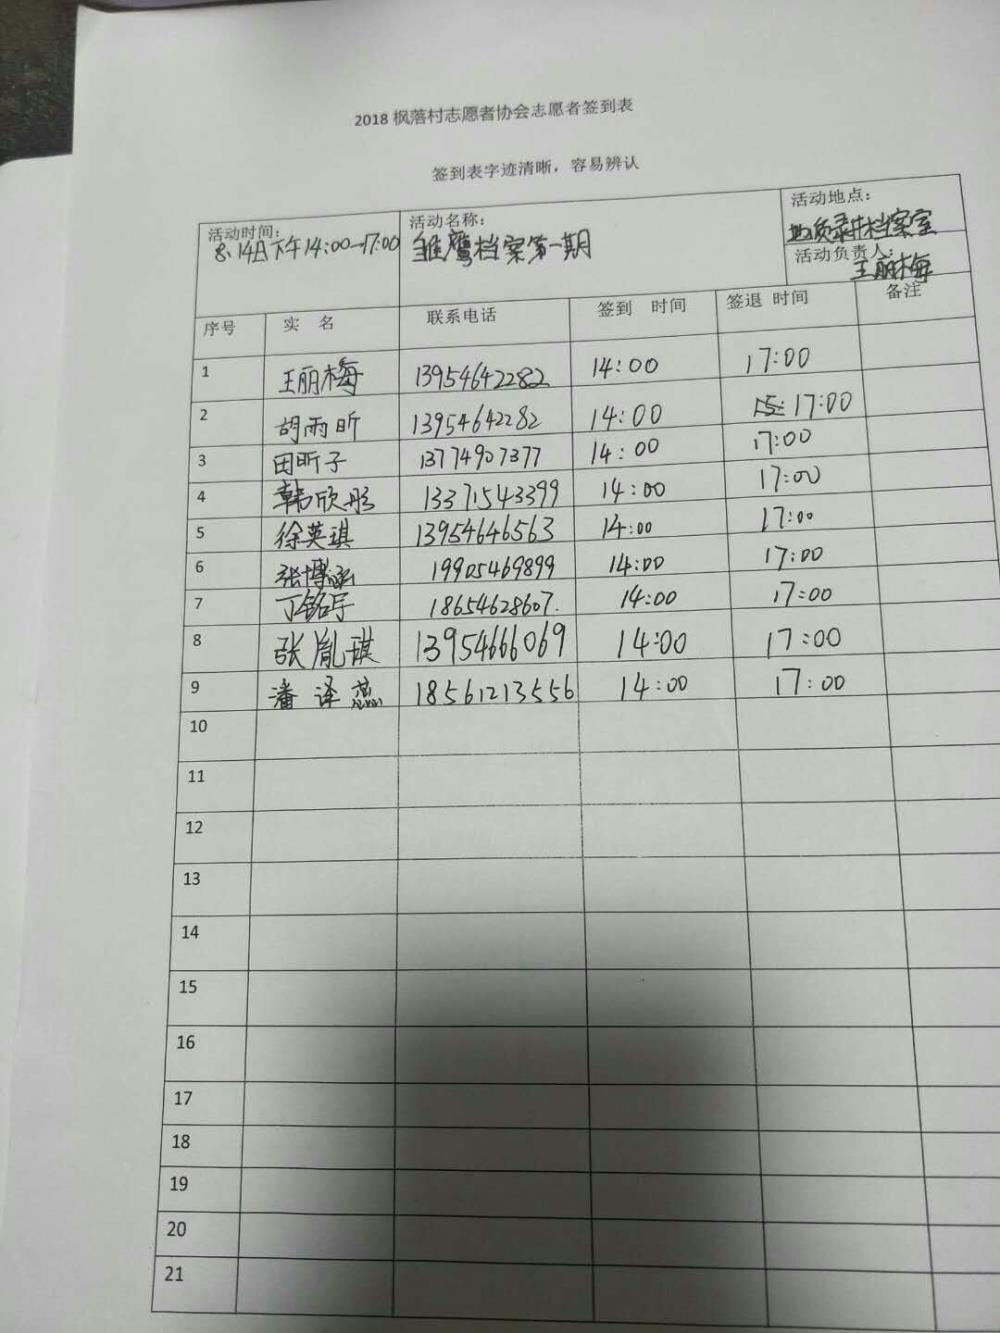 2018 枫落村志愿者协会志愿者签到表
签到表字迹清晰，容易辨认
活动时间： 活动名称： 活动地点：
8.14日下午14:00-17:00 雏鹰档案第一期 档案室
活动负责人：
王丽梅
序号 实 名 联系电话 签到 时间 签退 时间 备注
1 王丽梅 13954642282 14:00 17:00
2 胡雨昕 13954642282 14:00 17:00
3 田昕子 13774907377 14:00 17:00
4 韩欣彤 13371543399 14:00 17:00
5 徐英琪 13954646563 14:00 17:00
6 张博涵 19905469899 14:00 17:00
7 丁铭宇 18654628607. 14:00 17:00
8 张胤琪 13954666069 14:00 17:00
9 潘译蕊 18561213556 14:00 17:00
10
11
12
13
14
15
16
17
18
19
20
21